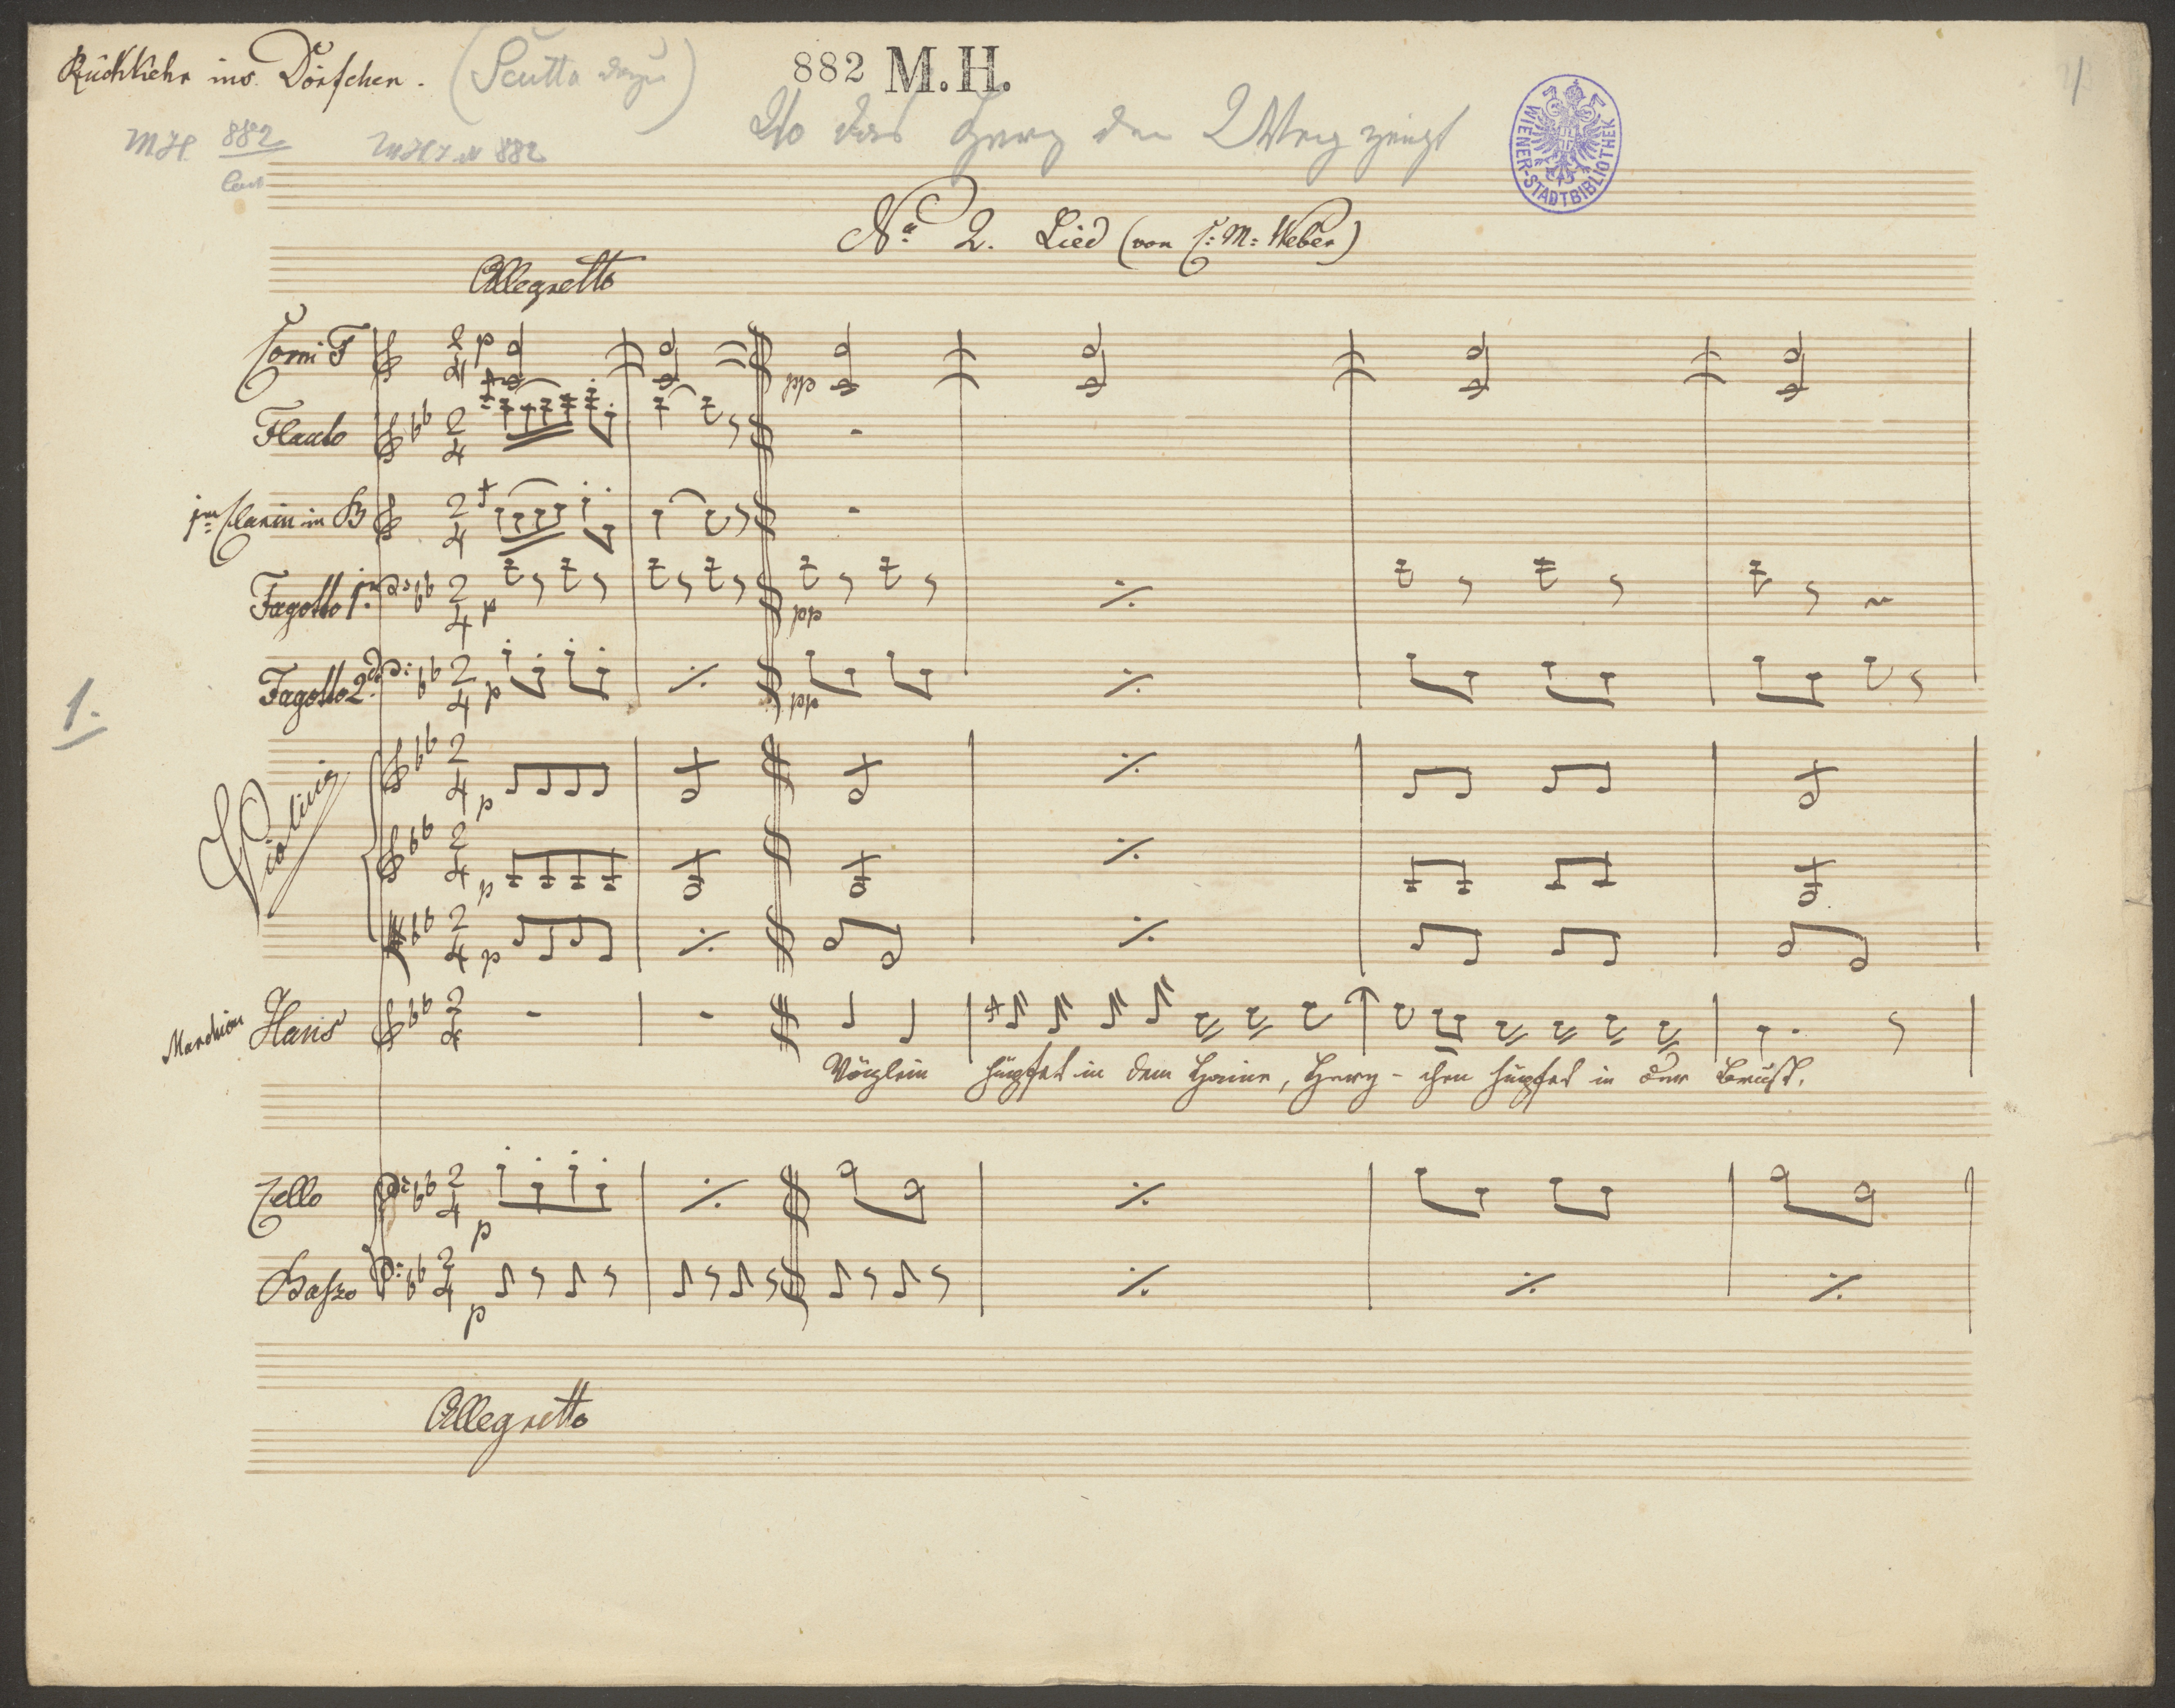 Rückkehr ins Dörfchen.
882 M.H.
MH 882
MH 882
Wo das Herz den Weg zeigt
WIENER-STADTBIBLIOTHEK
No 2. Lied (von C: M: Weber)
Allegretto
Corni F
p
pp
Flauto
Clarin in B
Fagotto 1mo
p
pp
Fagotto 2do
p
pp
1.
Violini
p
p
p
Hans
Vöglein hüpfet in dem Haine, Herz-chen hüpfet in der Brust.
Cello
p
Basso
p
Allegretto